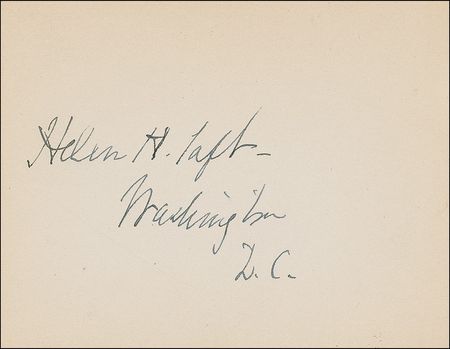 Helen H. Taft -
Washington
D. C.